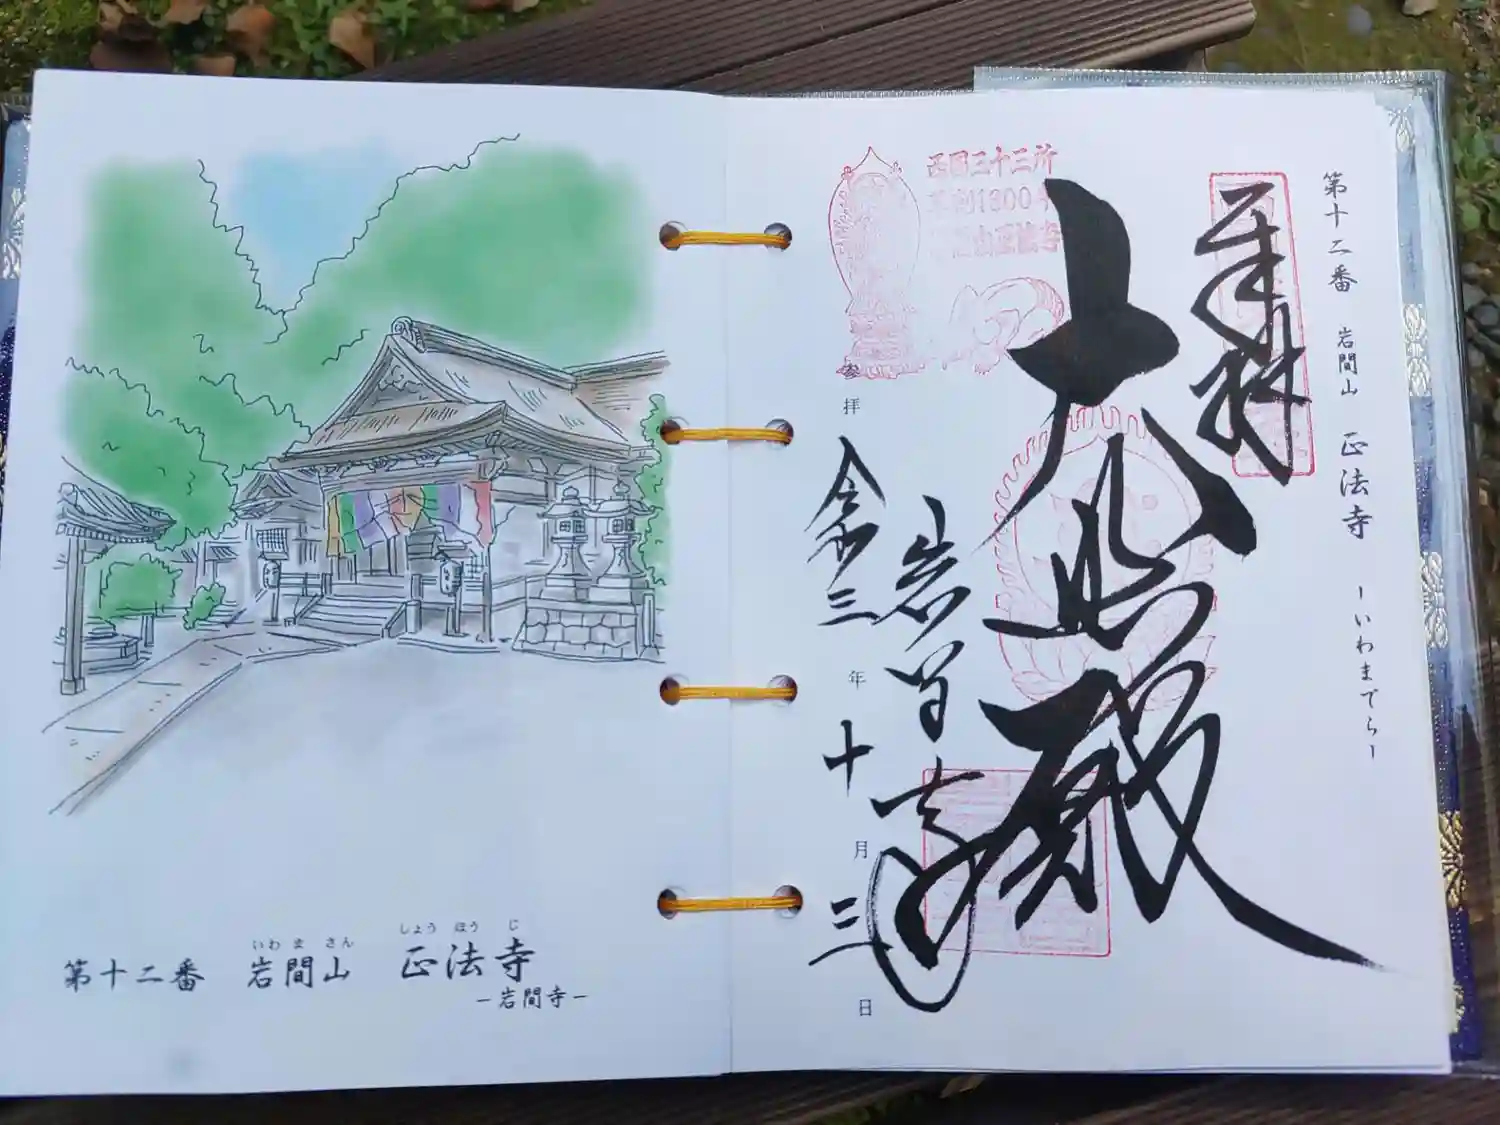 いわ ま さん しょう ほう じ
第十二番 岩間山 正法寺
-岩間寺-
第十二番 岩間山 正法寺 -いわまでら-
奉拝
大悲殿
岩間寺
西国三十三所
草創1300年
岩間山正法寺
参拝 令和三年十月三日